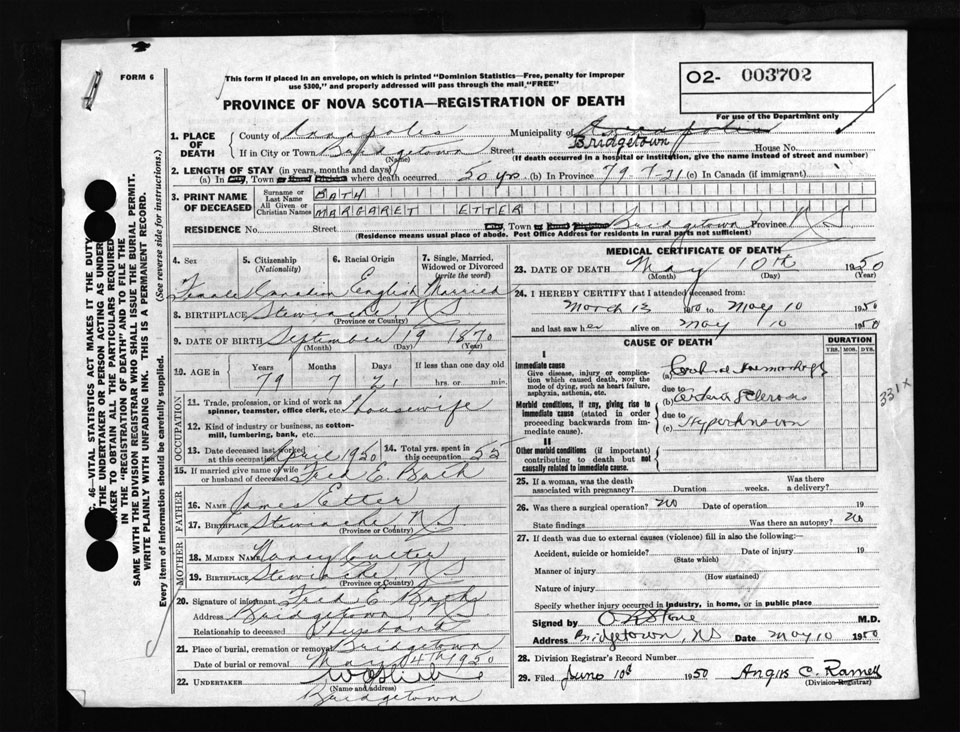 FORM 6
This form if placed in an envelope, on which is printed "Dominion Statistics—Free, penalty for improper
use $300," and properly addressed will pass through the mail "FREE"
O2- 003702
For use of the Department only
PROVINCE OF NOVA SCOTIA—REGISTRATION OF DEATH
1. PLACE OF DEATH County of Annapolis Municipality of Annapolis
If in City or Town Bridgetown (Name) Street Bridgetown House No.
(If death occurred in a hospital or institution, give the name instead of street and number)
2. LENGTH OF STAY (in years, months and days)
(a) In Town where death occurred 50 yrs (b) In Province 79-7-21 (c) In Canada (if immigrant)
3. PRINT NAME OF DECEASED Surname or Last Name BATH
All Given or Christian Names MARGARET ETTER
RESIDENCE No. Street Town Bridgetown Province NS
(Residence means usual place of abode. Post Office Address for residents in rural parts not sufficient)
4. Sex 5. Citizenship (Nationality) 6. Racial Origin 7. Single, Married, Widowed or Divorced (write the word)
Female Canadian English Married
8. BIRTHPLACE Stewiacke, N S
(Province or Country)
9. DATE OF BIRTH September 19 1870
(Month) (Day) (Year)
10. AGE in Years Months Days If less than one day old
79 7 21 hrs. or min.
OCCUPATION
11. Trade, profession, or kind of work as spinner, teamster, office clerk, etc. Housewife
12. Kind of industry or business, as cotton-mill, lumbering, bank, etc.
13. Date deceased last worked at this occupation April 1950 14. Total yrs. spent in this occupation 55
15. If married give name of wife or husband of deceased Fred E. Bath
FATHER
16. Name James Etter
17. Birthplace Stewiacke, N S
(Province or Country)
MOTHER
18. Maiden Name Nancy
19. Birthplace Stewiacke, N S
(Province or Country)
20. Signature of informant Fred E Bath
Address Bridgetown, N S
Relationship to deceased Husband
21. Place of burial, cremation or removal Bridgetown
Date of burial or removal May 14th 1950
22. UNDERTAKER
(Name and address)
Bridgetown
MEDICAL CERTIFICATE OF DEATH
23. DATE OF DEATH May 10th 1950
(Month) (Day) (Year)
24. I HEREBY CERTIFY that I attended deceased from:
March 13 50 to May 10 1950
and last saw her alive on May 10 1950
CAUSE OF DEATH
DURATION
YRS. MOS. DYS.
I
Immediate cause
Give disease, injury or complication which caused death, NOT the mode of dying, such as heart failure, asphyxia, asthenia, etc.
(a) Cerebral Haemorrhage
due to
(b) Arterio Sclerosis
Morbid conditions, if any, giving rise to immediate cause (stated in order proceeding backwards from immediate cause).
due to
(c) Hypertension
331X
II
Other morbid conditions (if important) contributing to death but not causally related to immediate cause.
25. If a woman, was the death associated with pregnancy? Duration weeks. Was there a delivery?
26. Was there a surgical operation? No Date of operation 19
State findings Was there an autopsy? No
27. If death was due to external causes (violence) fill in also the following:—
Accident, suicide or homicide? Date of injury 19
(State which)
Manner of injury
(How sustained)
Nature of injury
Specify whether injury occurred in industry, in home, or in public place
Signed by Stone M.D.
Address Bridgetown, NS Date May 10 1950
28. Division Registrar's Record Number
29. Filed June 10th 1950 Angus C. Ramey
(Division Registrar)
C. 46—VITAL STATISTICS ACT MAKES IT THE DUTY
THE UNDERTAKER OR PERSON ACTING AS UNDER-
TAKER TO OBTAIN ALL THE PARTICULARS REQUIRED
IN THE "REGISTRATION OF DEATH" AND TO FILE THE
SAME WITH THE DIVISION REGISTRAR WHO SHALL ISSUE THE BURIAL PERMIT.
WRITE PLAINLY WITH UNFADING INK. THIS IS A PERMANENT RECORD.
Every item of information should be carefully supplied. (See reverse side for instructions.)